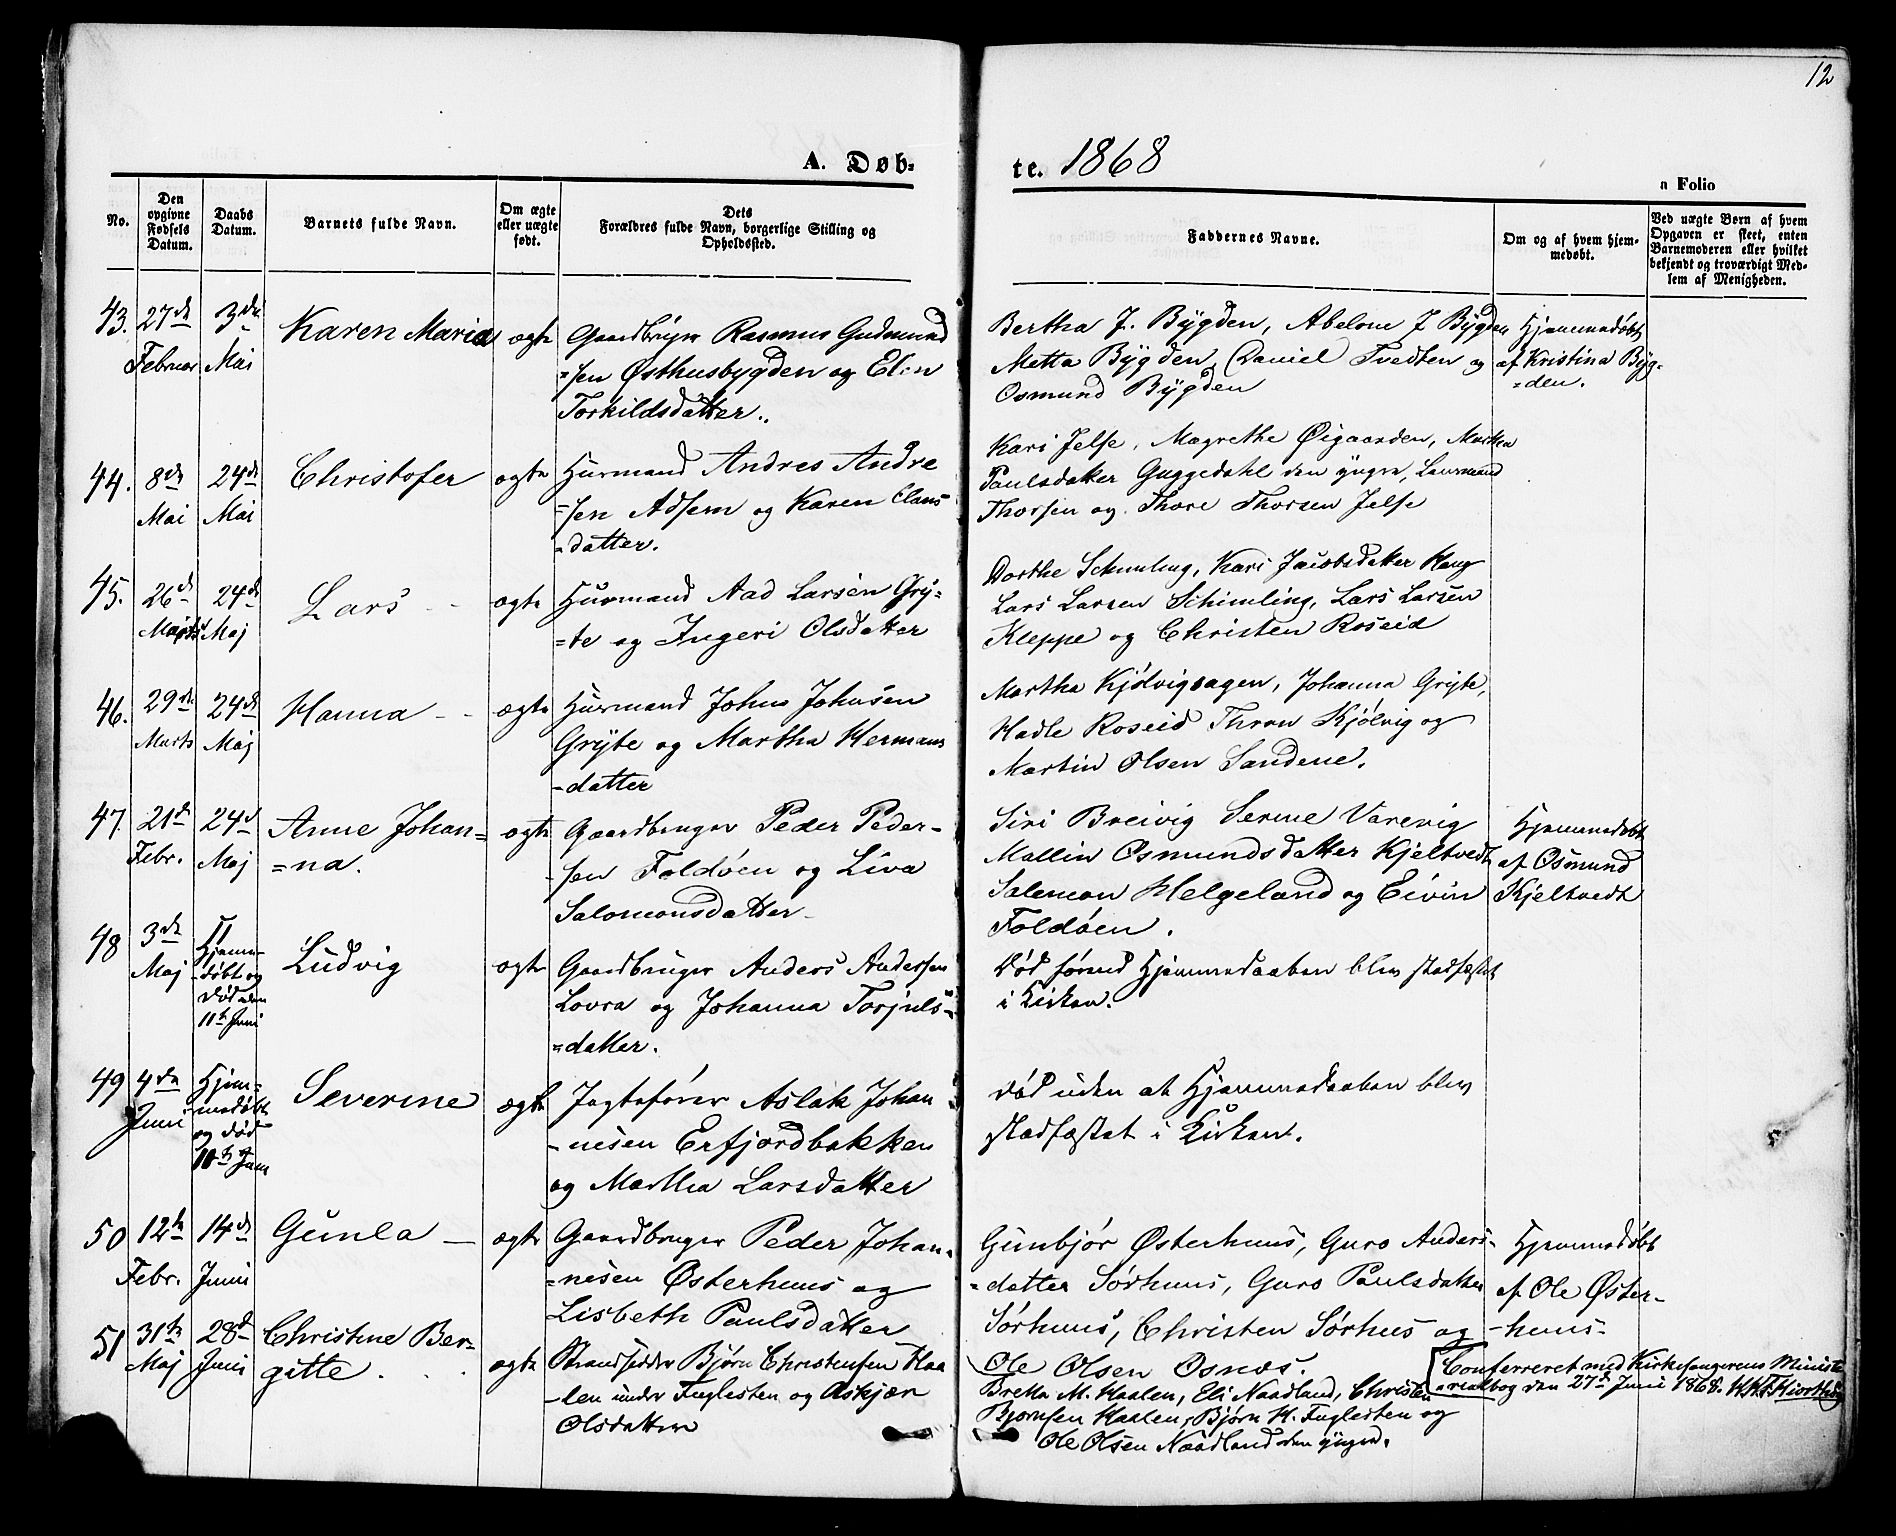 12
A. Døb-
te. 1868
a Folio
No.
Den opgivne Fødsels Datum.
Daabs Datum.
Barnets fulde Navn.
Om ægte eller uægte født.
Dets Forældres fulde Navn, borgerlige Stilling og Opholdssted.
Faddernes Navne.
Om og af hvem hjemmedøbt.
Ved uægte Børn af hvem Opgaven er skeet, enten Barnemoderen eller hvilket bekjendt og troværdigt Medlem af Menigheden.
43. 27de Februar 3die Mai Karen Maria ægte
Gaardbruger Rasmus Gudmund
=sen Østhusbygden og Elen
Torkildsdatter.
Bertha J. Bÿgden, Abelone J Bÿgden
Metta Bÿgden, Daniel Tvedten og
Osmund Bÿgden
Hjemmedøbt
af Kristina Bÿg-
=den.
44. 8de Mai 24de Mai Christofer ægte
Huusmand Andres Andre
=sen Adsem og Karen Claus
=datter.
Kari Jelse, Magrethe Øigaarden, Martha
Paulsdatter Guggedahl den ÿngre, Laurmand
Thorsen og Thore Thorsen Jelse
45. 26de Marts 24de Maj Lars ægte
Huusmand Aad Larsen Grÿ-
=te og Ingeri Olsdatter
Dorthe Schimling, Kari Jacobsdatter Haug
Lars Larsen Schimling, Lars Larsen
Kleppe og Christen Roseid
46. 29de Marts 24de Maj Hanna ægte
Huusmand Johns Johnsen
Grÿte og Martha Hermans
-datter
Martha Kjólvigsagen, Johanna Grÿte,
Hadle Roseid Thron Kjólvig og
Martin Olsen Sandene.
47. 21de Febr. 24de Maj Anne Johan=
=na. ægte
Gaardbruger Peder Peder-
sen Foldóen og Liva
Salomonsdatter
Siri Breivig Serine Varevig
Mallin Osmundsdatter Kjeltvedt
Salemon Helgeland og Eivin
Foldóen.
Hjemmedøbt
af Osmund
Kjeltvedt
48 3die Maj
Hjemme-
døbt og
Død den
11te Juni
Ludvig ægte
Gaardbruger Anders Andersen
Lovra og Johanna Torjuls=
=datter.
Død førend Hjemmedaaben blev stadfæstet
i Kirken.
49 4de Juni
Hjem=
medøbt
og død
10de Juni
Severine ægte
Jagtefører Aslak Johan
-nesen Erfjordbakken
og Martha Larsdatter
Død uden at Hjemmedaaben blev
stadfæstet i Kirken.
50 12te Febr. 14de Juni Gunla ægte
Gaardbruger Peder Johan=
=nesen Østerhuus og
Lisbeth Paulsdatter
Gunbjór Østerhuus, Guro Anders-
=datter Sórhuus, Guro Paulsdatter
Sórhuus, Christen Sórhus og
Ole Olsen Osnæs.
Hjemmedøbt
af Ole Øster-
-huus.
51 31te Maj 28de Juni Christine Ber-
gitte. ægte
Strandsidder Bjørn Christensen Haa
-len under Fuglesten og Askjær
Olsdatter
Bretta M. Haalen, Eli Naadland, Christen
Bjørnsen Haalen, Bjørn H. Fuglesten og
Ole Olsen Naadland den ÿngre.
Conferreret med Kirkesangerens Ministe
=rialbog den 27de Juni 1868.